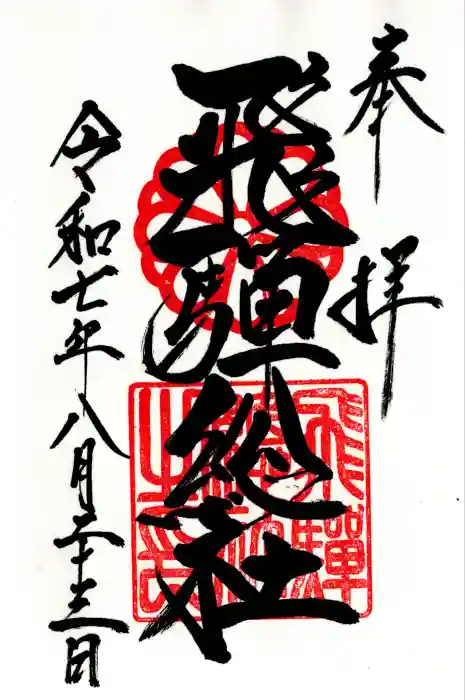 奉拝
飛騨総社
令和七年八月二十三日